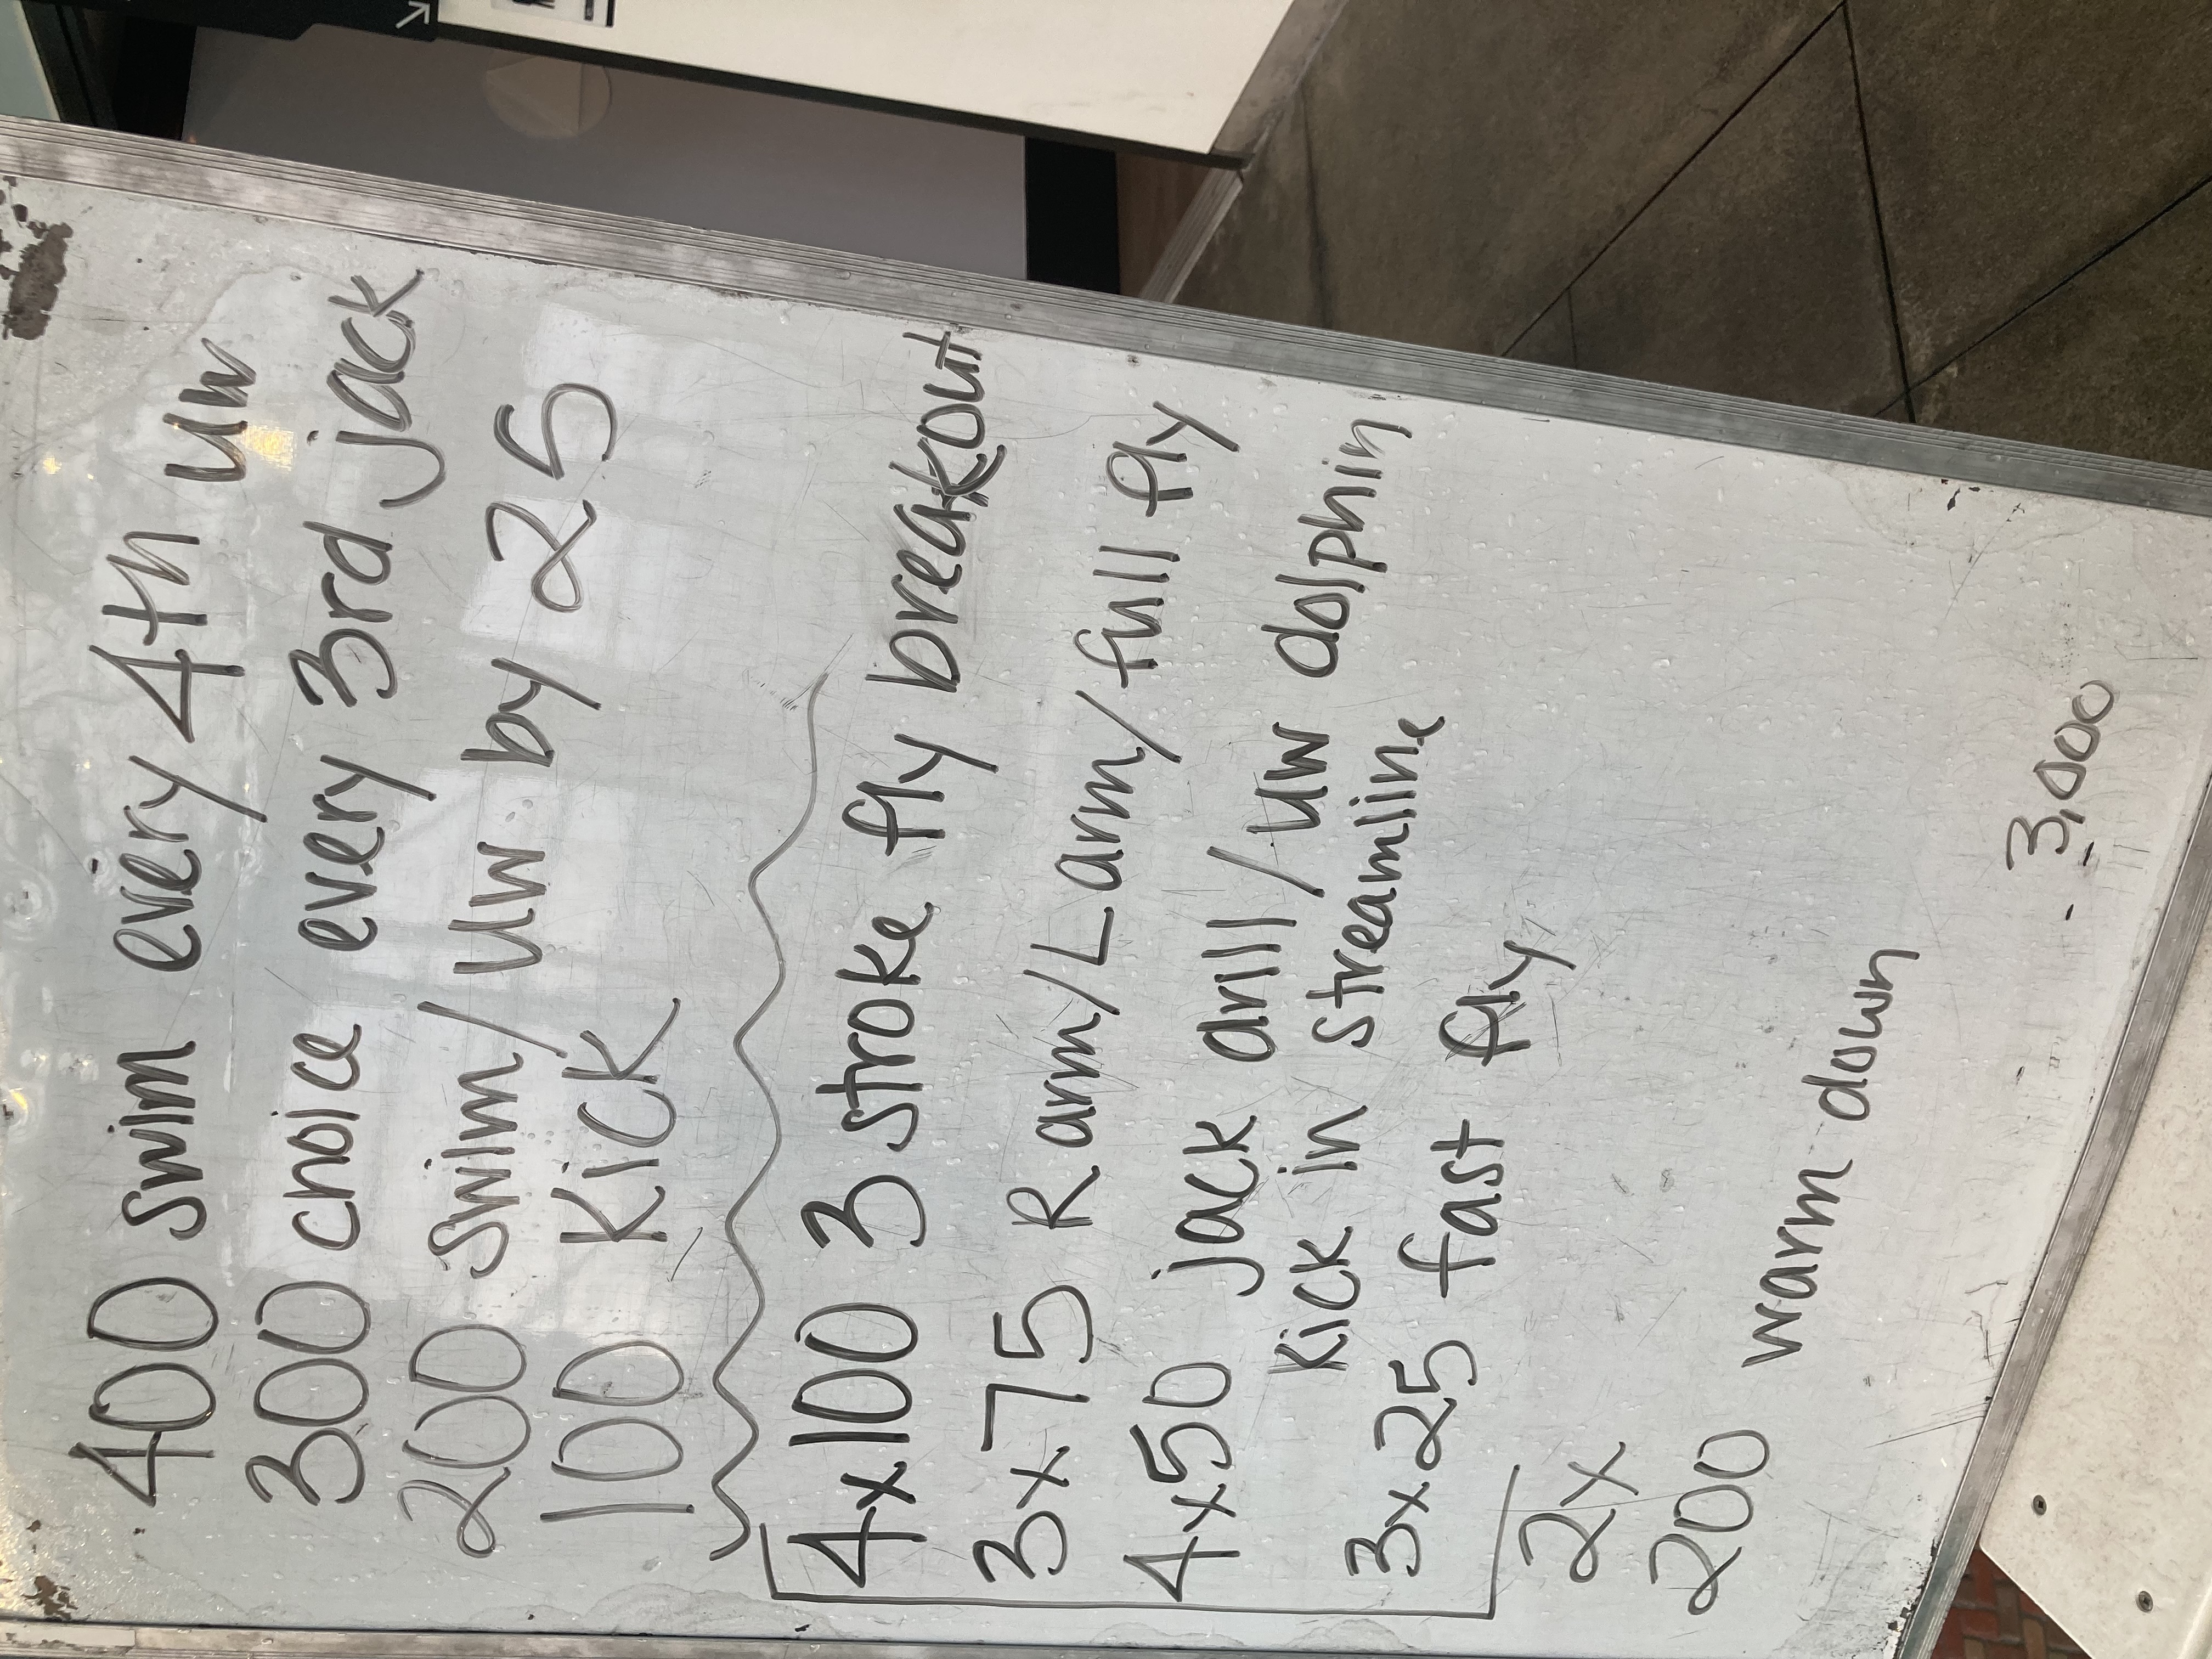 400 swim every 4th uw
300 choice every 3rd jack
200 swim/uw by 25
100 kick
4x100 3 stroke fly breakout
3x75 R arm/L arm/full fly
4x50 jack drill/uw dolphin
kick in streamline
3x25 fast fly
2x
200 warm down
3,000